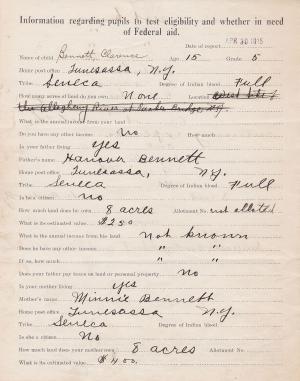 Information regarding pupils to test eligibility and whether in need
of Federal aid.
Date of report APR 30 1915
Name of child Bennett, Clarence Age 15 Grade 5
Home post office Tunesassa, N.Y.
Tribe Seneca Degree of Indian blood Full
How many acres of land do you own None Location West side of
the Allegheny River at
What is the annual income from your land
Do you have any other income No How much
Is your father living yes
Father's name Hanover Bennett
Home post office Tunesassa, N.Y.
Tribe Seneca Degree of Indian blood Full
Is he a citizen no
How much land does he own 8 acres Allotment No. not alloted
What is its estimated value $250
What is the annual income from his land Not known
Does he have any other income " "
If so, how much " "
Does your father pay taxes on land or personal property No
Is your mother living yes
Mother's name Minnie Bennett
Home post office Tunesassa N.Y.
Tribe Seneca Degree of Indian blood
Is she a citizen No
How much land does your mother own 8 acres Allotment No.
What is its estimated value $400.